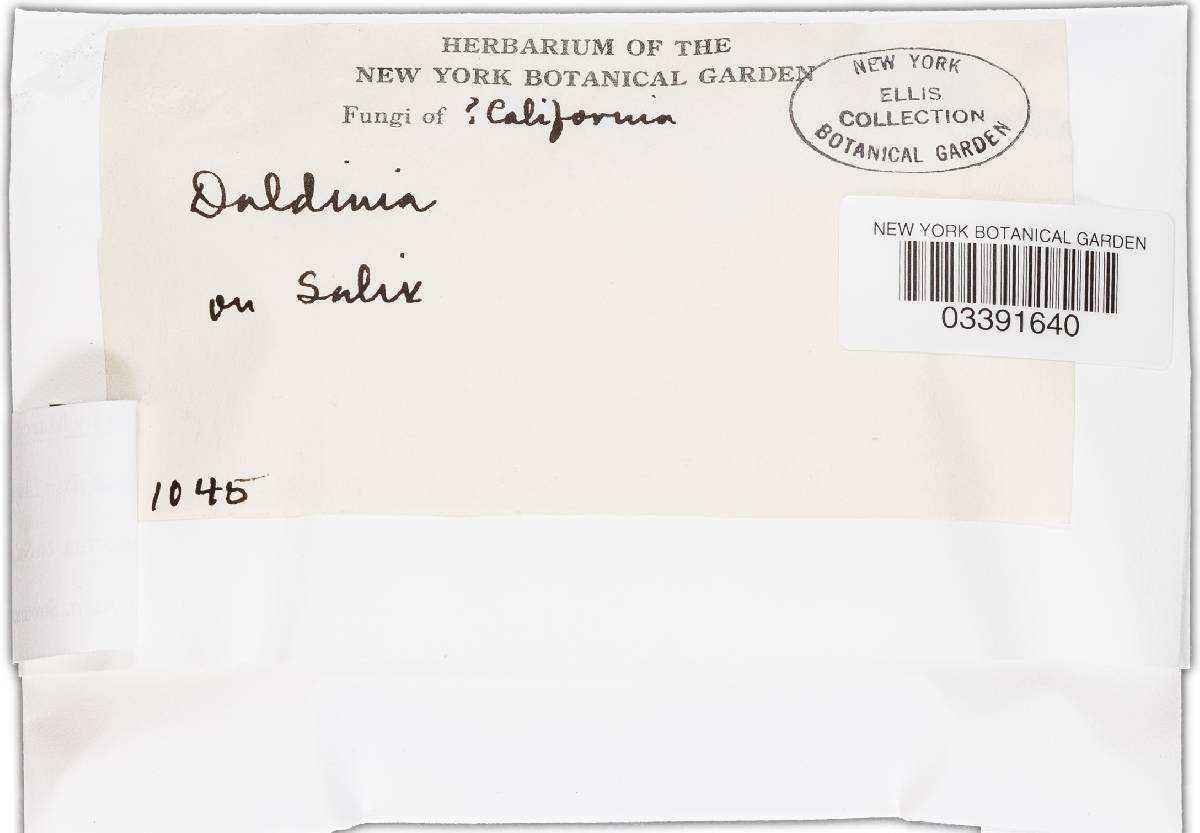 HERBARIUM OF THE
NEW YORK BOTANICAL GARDEN
Fungi of ? California
NEW YORK
ELLIS
COLLECTION
BOTANICAL GARDEN
Daldinia
on Salix
NEW YORK BOTANICAL GARDEN
03391640
1045